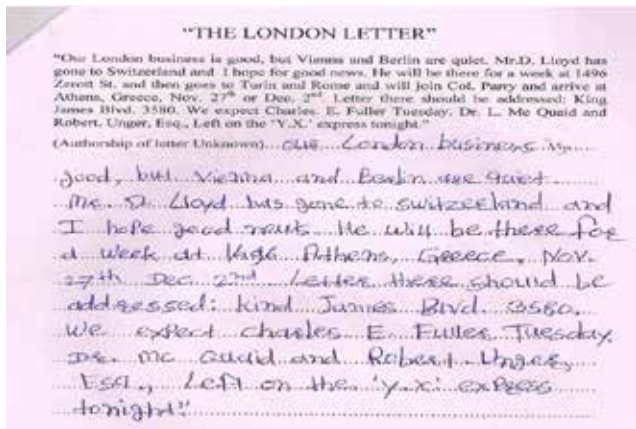 "THE LONDON LETTER"
"Our London business is good, but Vienna and Berlin are quiet. Mr.D. Lloyd has
gone to Switzerland and I hope for good news. He will be there for a week at 1496
Zerott St. and then goes to Turin and Rome and will join Col. Parry and arrive at
Athens, Greece, Nov. 27th or Dec. 2nd. Letter there should be addressed: King
James Blvd. 3580. We expect Charles. E. Fuller Tuesday. Dr. L. Mc Quaid and
Robert. Unger, Esq., Left on the 'Y.X.' express tonight."
(Authorship of letter Unknown) our London business is
good, but Vienna and Berlin are quiet.
Mr. D. Lloyd has gone to Switzerland and
I hope good news. He will be there for
a week at Athens, Greece, Nov.
27th Dec. 2nd Letter there should be
addressed: Kind James Blvd. 3580.
We expect Charles E. Fuller Tuesday.
Dr. Mc Quaid and Robert. Unger,
Esq., Left on the 'Y.X.' express
tonight"